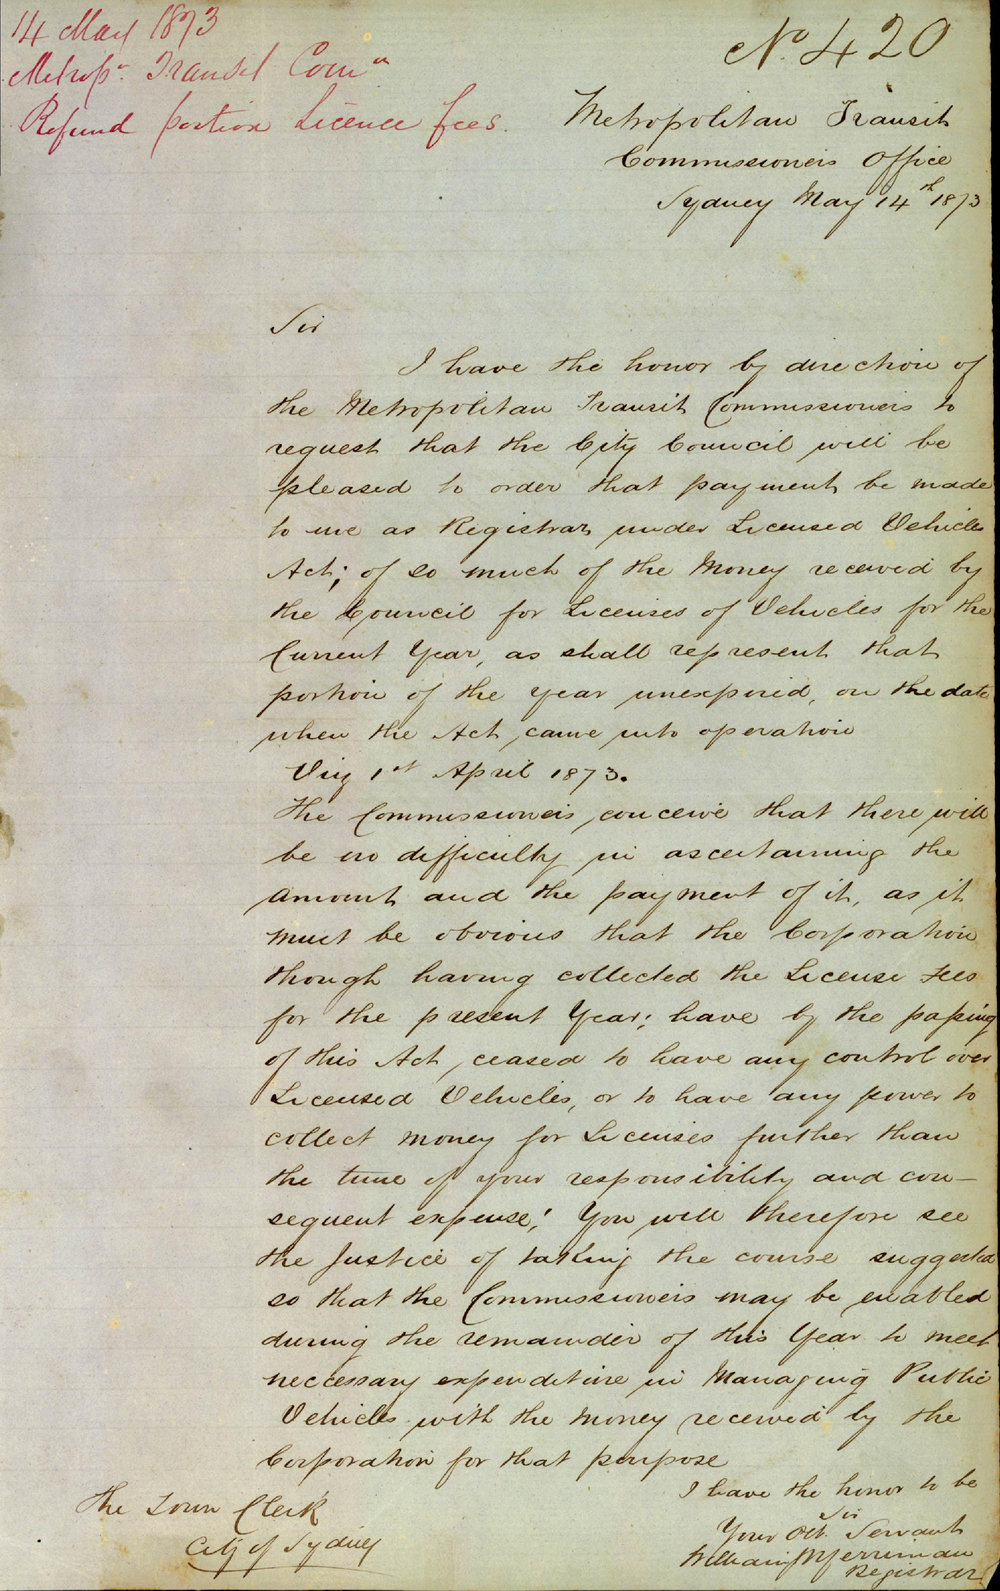 14 May 1873
Metropn. Transit Comn
Refund portion Licence fees.
No. 420
Metropolitan Transit
Commissioners Office
Sydney May 14th 1873
Sir
I have the honor by direction of
the Metropolitan Transit Commissioners to
request that the City Council will be
pleased to order that payment be made
to me as Registrar under Licensed Vehicles
Act; of so much of the Money received by
the Council for Licenses of Vehicles for the
Current Year, as shall represent that
portion of the year unexpired, on the date
when the Act, came into operation
Viz 1st April 1873.
The Commissioners, conceive that there will
be no difficulty in ascertaining the
amount and the payment of it, as it
must be obvious that the Corporation
though having collected the License Fees
for the present Year; have by the passing
of this Act, ceased to have any control over
Licensed Vehicles, or to have any power to
collect money for Licenses further than
the time of your responsibility and con-
sequent expense! You will therefore see
the Justice of taking the course suggested
so that the Commissioners may be enabled
during the remainder of this Year to meet
neccessary expenditure in Managing Public
Vehicles with the money received by the
Corporation for that purpose
I have the honor to be
Sir
Your Obt. Servant
William Merriman
Registrar
The Town Clerk
City of Sydney